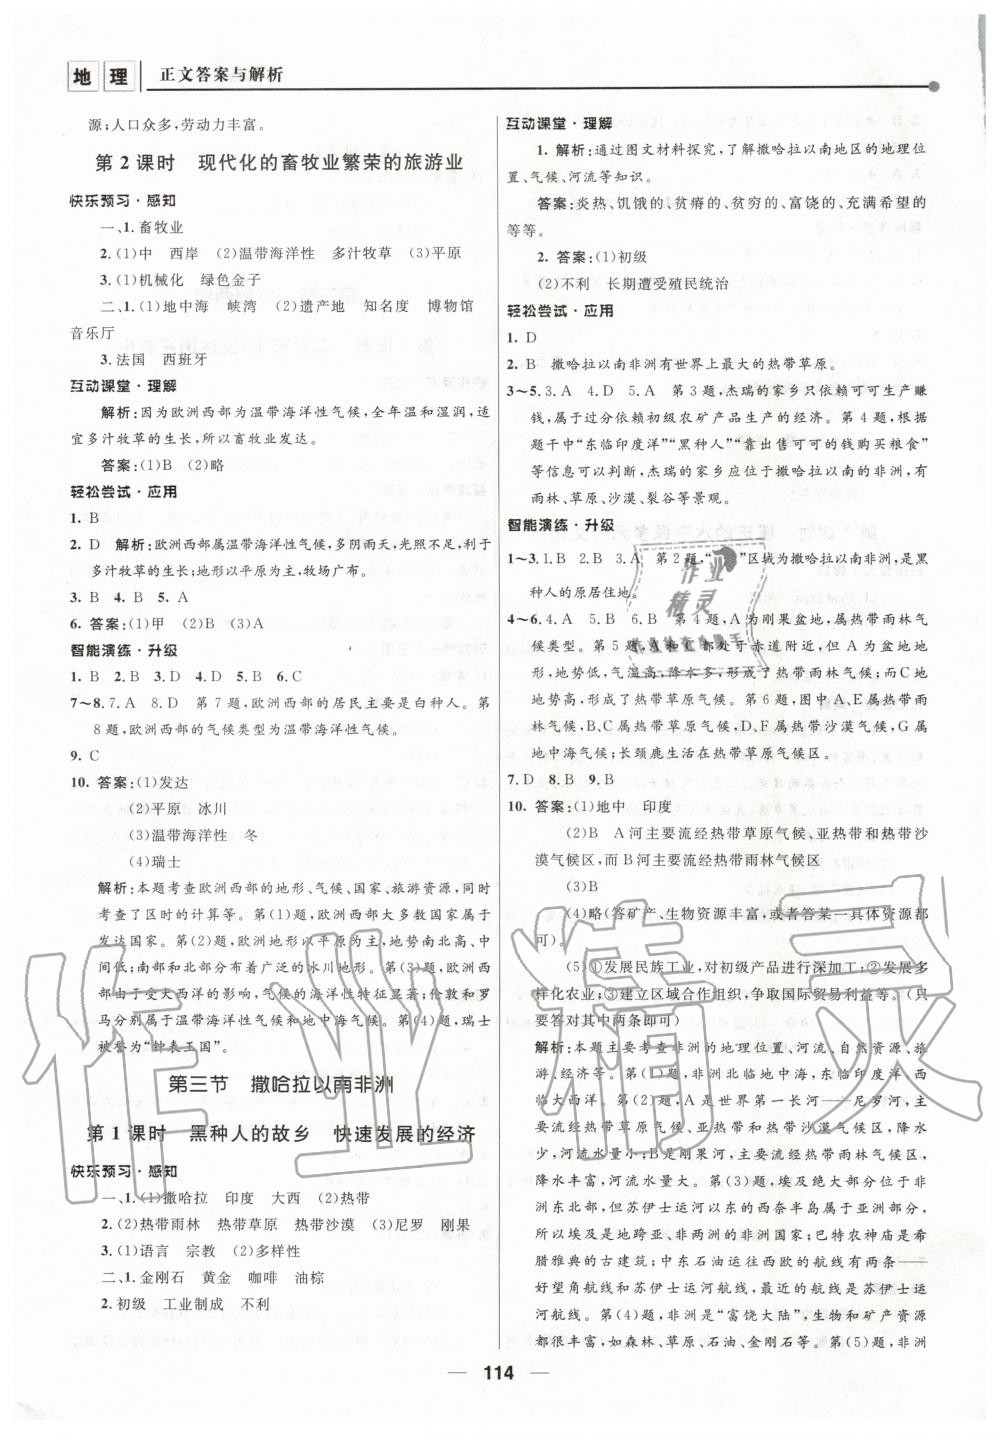 地 理 正文答案与解析
源;人口众多,劳动力丰富。
第2课时 现代化的畜牧业繁荣的旅游业
快乐预习·感知
一、1.畜牧业
2.(1)中 西岸 (2)温带海洋性 多汁牧草 (3)平原
3.(1)机械化 绿色金子
二、1.(1)地中海 峡湾 (2)遗产地 知名度 博物馆
音乐厅
3.法国 西班牙
互动课堂·理解
解析:因为欧洲西部为温带海洋性气候,全年温和湿润,适
宜多汁牧草的生长,所以畜牧业发达。
答案:(1)B (2)略
轻松尝试·应用
1. B
2. D 解析:欧洲西部属温带海洋性气候,多阴雨天,光照不足,利于
多汁牧草的生长;地形以平原为主,牧场广布。
3. B 4. B 5. A
6. 答案:(1)甲 (2)B (3)A
智能演练·升级
1. B 2. B 3. D 4. D 5. B 6. C
7～8. 7. A 8. D 第7题,欧洲西部的居民主要是白种人。第
8题,欧洲西部的气候类型为温带海洋性气候。
9. C
10. 答案:(1)发达
(2)平原 冰川
(3)温带海洋性 冬
(4)瑞士
解析:本题考查欧洲西部的地形、气候、国家、旅游资源,同时
考查了区时的计算等。第(1)题,欧洲西部大多数国家属于
发达国家。第(2)题,欧洲地形以平原为主,南北高、中
间低;南部和北部分布着广泛的冰川地形。第(3)题,欧洲西
部由于受大西洋的影响,气候的海洋性特征显著;伦敦和罗
马分别属于温带海洋性气候和地中海气候。第(4)题,瑞士
被誉为“钟表王国”。
第三节 撒哈拉以南非洲
第1课时 黑种人的故乡 快速发展的经济
快乐预习·感知
一、1.(1)撒哈拉 印度 大西 (2)热带
2.(2)热带雨林 热带草原 热带沙漠 (3)尼罗 刚果
3.(1)语言 宗教 (2)多样性
二、1.金刚石 黄金 咖啡 油棕
2.初级 工业制成 不利
互动课堂·理解
1. 解析:通过图文材料探究,了解撒哈拉以南地区的地理位
置、气候、河流等知识。
答案:炎热、饥饿的、贫瘠的、贫穷的、富饶的、充满希望的
等等。
2. 答案:(1)初级
(2)不利 长期遭受殖民统治
轻松尝试·应用
1. D
2. B 撒哈拉以南非洲有世界上最大的热带草原。
3～5. 3. A 4. D 5. A 第3题,杰瑞的家乡只依赖可可生产赚
钱,属于过分依赖初级农矿产品生产的经济。第4题,根据
题干中“东临印度洋”“黑种人”“靠出售可可的钱购买粮食”
等信息可以判断,杰瑞的家乡应位于撒哈拉以南的非洲,有
雨林、草原、沙漠、裂谷等景观。
智能演练·升级
1～3. 1. B 2. B 3. A 第2题,“ ”区域为撒哈拉以南非洲,是黑
种人的原居住地。
4～6. 4. A 5. B 6. B 第4题,A为刚果盆地,属热带雨林气
候类型。第5题,A和C都处于赤道附近,但A为盆地地
形,地势低,气温高,降水多,形成了热带雨林气候,而C地
地势高,形成了热带草原气候。第6题,图中A、E属热带雨
林气候,B、C属热带草原气候,D、F属热带沙漠气候,G属
地中海气候;长颈鹿生活在热带草原气候区。
7. D 8. B 9. B
10. 答案:(1)地中 印度
(2)B A河主要流经热带草原气候、亚热带和热带沙
漠气候区,而B河主要流经热带雨林气候区
(3)B
(4)略(答矿产、生物资源丰富,或者答某一具体资源都
可)。
(5)①发展民族工业,对初级产品进行深加工;②发展多
样化农业;③建立区域合作组织,争取国际贸易利益等。(只
要答对其中两条即可)
解析:本题主要考查非洲的地理位置、河流、自然资源、旅
游、经济等。第(1)题,非洲北临地中海,东临印度洋、西临
大西洋。第(2)题,A是世界第一长河——尼罗河,主
要流经热带草原气候、亚热带和热带沙漠气候区,降水
少,河流水量小;B是刚果河,主要流经热带雨林气候区,
降水丰富,河流水量大。第(3)题,埃及绝大部分位于非
洲东北部,但苏伊士运河以东的西奈半岛属于亚洲,所以
埃及是地跨亚、非两洲的非洲国家;巴特农神庙是欧洲希
腊雅典的古建筑;中东石油运往西欧的航线有两条——
好望角航线和苏伊士运河航线,最近的航线是苏伊士运
河航线。第(4)题,非洲是“富饶大陆”,生物和矿产资源
都很丰富,如森林、草原、石油、金刚石等。第(5)题,非洲
114
作业精灵
作业
精灵
作业检查小助手